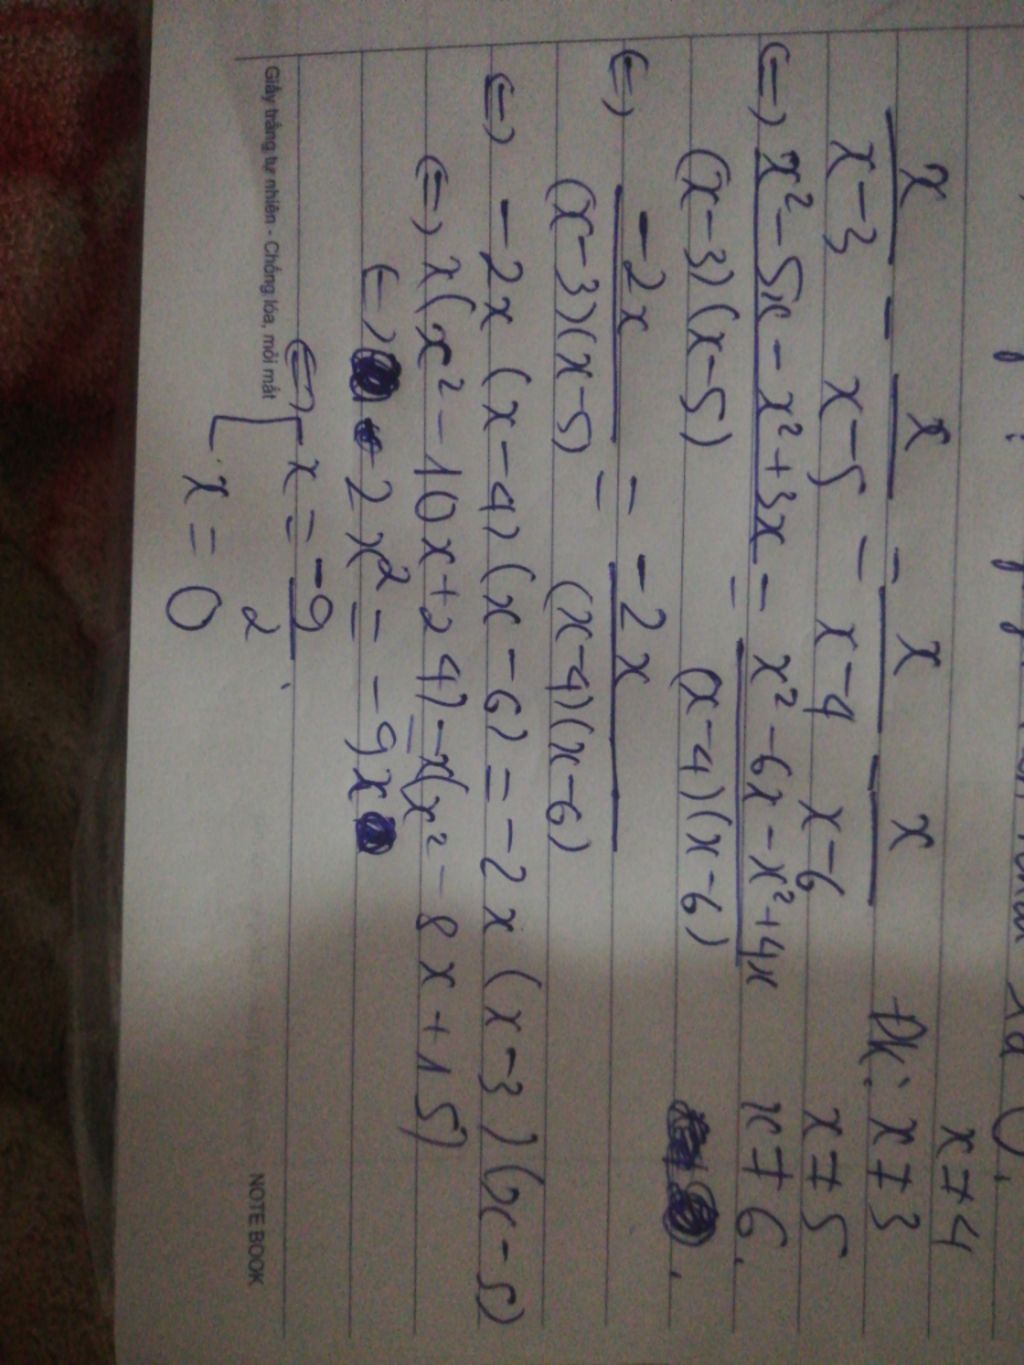 x ≠ 4
x/(x-3) - x/(x-5) = x/(x-4) - x/(x-6) Đk: x ≠ 3
x ≠ 5
(=) (x² - 5x - x² + 3x)/((x-3)(x-5)) = (x² - 6x - x² + 4x)/((x-4)(x-6)) x ≠ 6.
(=) -2x/((x-3)(x-5)) = -2x/((x-4)(x-6))
(=) -2x (x-4)(x-6) = -2x (x-3)(x-5)
(=) x(x² - 10x + 24) = x(x² - 8x + 15)
(=) -2x² = -9x
(=) [ x = -9/2
x = 0
Giấy trắng tự nhiên - Chống lóa, mỏi mắt
NOTE BOOK